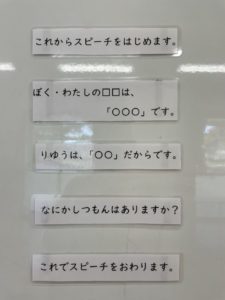 これからスピーチをはじめます。
ぼく・わたしの□□は、
「○○○」です。
りゆうは、「○○」だからです。
なにかしつもんはありますか？
これでスピーチをおわります。